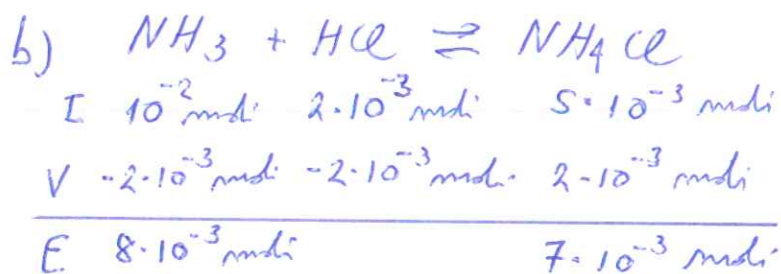 b) NH3 + HCl ⇌ NH4Cl
I 10^-2 moli 2·10^-3 moli 5·10^-3 moli
V -2·10^-3 moli -2·10^-3 moli 2·10^-3 moli
E 8·10^-3 moli 7·10^-3 moli